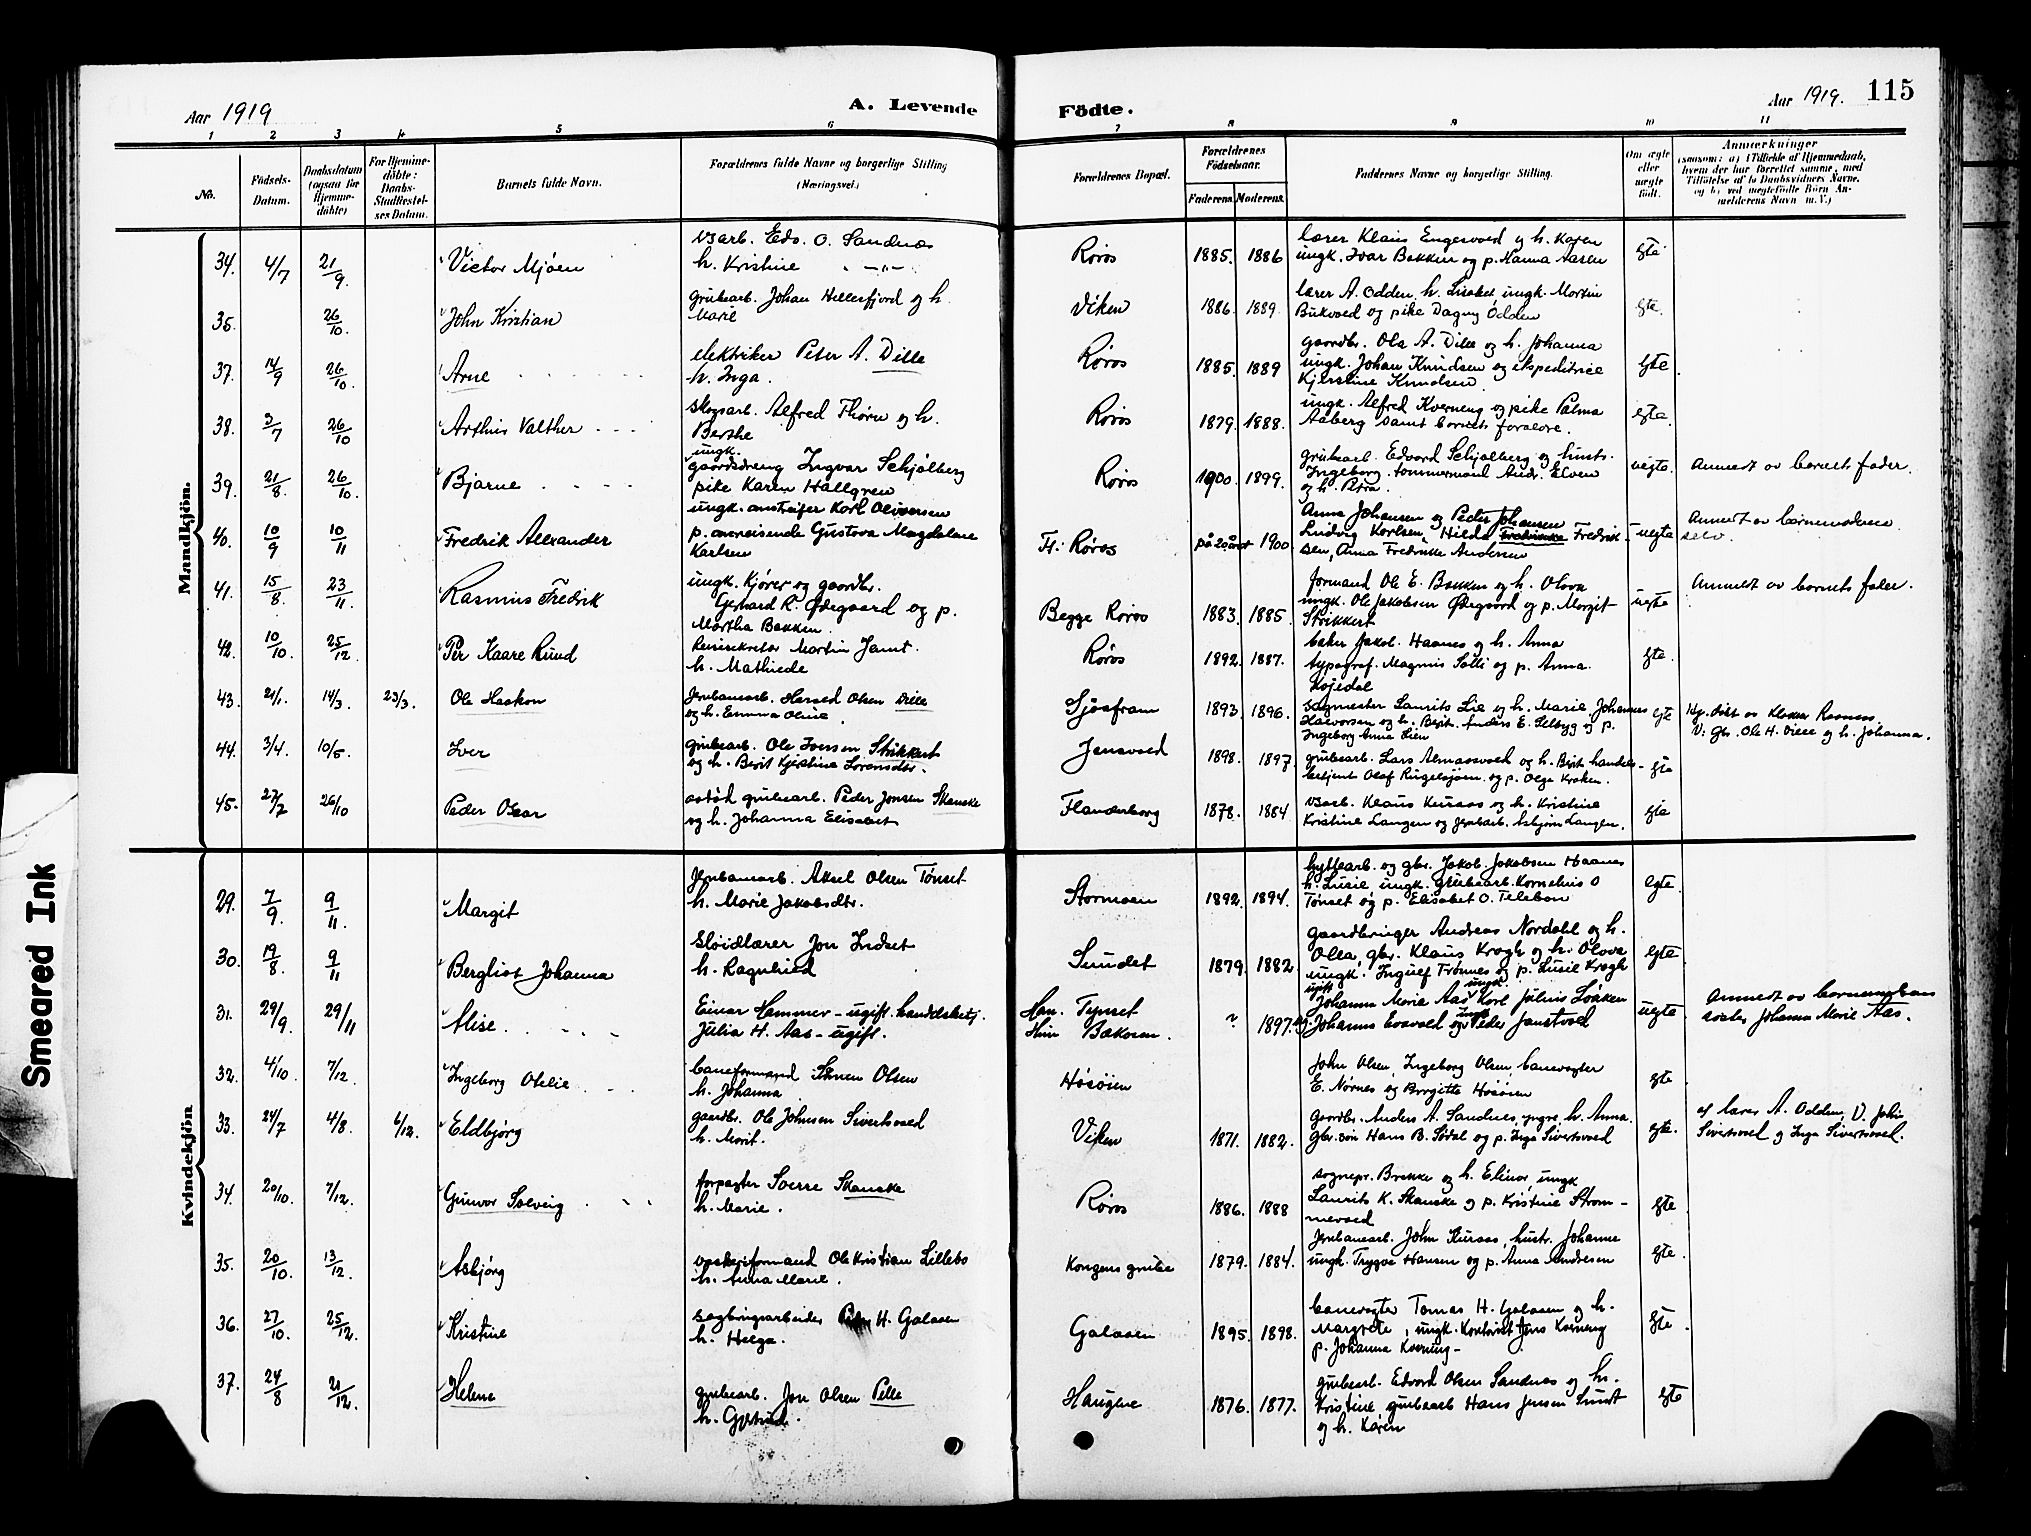 Aar 1919
A. Levende
Födte.
Aar 1919.
115
1 2 3 4 5 6 7 8 9 10 11
No.
Födsels-
Datum.
Daabsdatum
(ogsaa for
Hjemme-
döbte)
For Hjemme-
döbte:
Daabs-
Stadfæstel-
ses Datum.
Barnets fulde Navn.
Forældrenes fulde Navne og borgerlige Stilling
(Næringsvei.)
Forældrenes Bopæl.
Forældrenes
Födselsaar.
Faderens.
Moderens.
Faddernes Navne og borgerlige Stilling.
Om ægte
eller
uægte
födt.
Anmærkninger
(saasom: a) i Tilfælde af Hjemmedaab,
hvem der har forrettet samme, med
Tilföielse af to Daabsvidners Navne.
og b) ved uegtefödte Börn An-
melderens Navn m. V.)
Mandkjön.
34. 4/7 21/9 Victor Mjöen
Edv. O. Sandnæs
h. Kristine
Røros 1885. 1886
lærer Klaus Engesvoed og h. Karen
ungk. Ivar Bakken og p. Hanna Aasen
egte
35. 26/10 John Kristian
grubearb. Johan Hellerfjord og h.
Marie
Viken 1886. 1889.
lærer A. Odden, h. Lisabet, ungk. Martin
Bukvoed og pike Dagny Odden
egte.
37. 14/9 26/10. Arne
elektriker Peter A. Dille
h. Inga.
Røros 1885. 1889
gaardbr. Ola A. Dille og h. Johanna
ungk. Johan Knudsen og ekspeditrice
Kjerstine Knudsen.
egte
38. 3/7 26/10 Arthur Valther
Skogsarb. Alfred Thøru og h.
Berthe
Røros 1879. 1888.
ungk. Alfred Kverneng og pike Palma
Aaberg samt barnets forældre.
egte
39. 21/8. 26/10. Bjarne
ungk.
gaardsdreng Ingvar Schjølberg
pike Karen Hallgren
Røros 1900. 1899.
grubearb. Edvard Schjølberg og hust.
Ingeborg. tømmermand Andr. Elven
og h. Petra.
uegte. Anmedt av barnets fader.
40. 10/9 10/11 Fredrik Alexander
ungk. anstreifer Karl Oliversen
p. omreisende Gustava Magdalene
Karlsen
Fl: Røros på 20 året 1900
Anna Johansen og Peder Johansen
Ludvig Karlsen, Hilda Fredrikke Fredrik-
sen, Anna Fredrikke Andersen
uegte
Anmedt av barnemoderen
selv.
41. 15/8. 23/11. Rasmus Fredrik
ungk. Kjører og gaardbr.
Gerhard R. Ødegaard og p.
Martha Bakken.
Begge Røros 1883. 1885.
formand Ole E. Bakken og h. Olava
ungk. Ole Jakobsen Ødegaard og p. Margit
Strikkert
uegte
Anmeldt av barnets fader.
42. 10/10. 25/12. Per Kaare Ruud
Martin Jamt.
h. Mathilde
Røros 1892. 1887.
baker Jakob Haanes og h. Anna
typograf. Magnus Solli og p. Anna
Kojedal
egte
43. 21/1. 14/3. 23/3. Ole Haakon
Jernbanearb. Harald Olsen Dille
og h. Emma Oline.
Sjøafram 1893. 1896.
sagmester Laurits Lie og h. Marie Johannes
Halvorsen og h. Berit. Anders E. Selbyg og p.
Ingeborg Anna Lien
egte
Hj. døbt av Klokker Rasmus.
V: gbr. Ole H. Dille og h. Johanna.
44. 3/4. 10/5. Iver
grubearb. Ole Iversen Strikkert
og h. Berit Kjerstine Lorensdtr.
Jensvoed 1898. 1897.
grubearb. Lars Almaasvoed og h. Berit handels-
betjent Olaf Ringelsjøen og p. Olga Kroken.
egte
45. 27/7 26/10 Peder Oskar
avdød grubearb. Peder Jensen Skanske
og h. Johanna Elisabet
Flanderborg 1878. 1884
Klaus Kuraas og h. Kristine
Kristine Langen og jernbarb. Asbjørn Langen.
egte
Kvindekjön
29. 7/9. 9/11. Margit
Jernbanearb. Aksel Olsen Tønset
h. Marie Jakobsdtr.
Stormoen 1892. 1894.
hyttearb. og gbr. Jakob Jakobsen Haanes
h. Lusie ungk. grubearb. Kornelius O
Tønset og p. Elisabet O. Telebon
egte.
30. 19/8. 9/11 Bergliot Johanna
Sløidlærer Jon Indset
h. Ragnhild
Sundet 1879. 1882.
gaardbruger Andreas Nordahl og h.
Olea, gbr. Klaus Krogh og h. Olava
ungk. Inguef Trønnes og p. Lusie Krogh
egte
31. 29/9. 29/11 Alise
Einar Hammer - ugift. handelsbetj.
Julia H. Aas - ugift.
Han. Tynset
Hun Bakosen.
? 1897.
ugift ungk.
Johanna Marie Aas Karl Julius Løaken
Johannes Evavoed og Peder Jamtvoed
uegte.
Anmedt av barnemoderens
søster Johanna Marie Aas.
32. 4/10 7/12. Ingeborg Otelie
baneformand Simen Olsen
h. Johanna
Høsøien
John Olsen, Ingeborg Olsen, banevogter
E. Nørnes og Birgitte Høsøien
egte
33. 24/7 4/8. 6/12. Eldbjørg
gaardbr. Ole Johnsen Sivertsvoed
h. Marit.
Viken 1871. 1882.
Gaardbr. Anders A. Sandnes, yngre, h. Anna
Gbr.søn Hans B. Sødal og p. Inga Sivertsvoed
egte.
af lærer A. Odden, V. John
Sivertsvoed og Inga Sivertsvoed.
34. 20/10. 7/12. Gunvor Solveig
forpagter Sverre Skanske
h. Marie.
Røros 1886. 1888
sognepr. Brække og h. Elinor, ungk
Laurits K. Skanske og p. Kristine Strøm-
mevoed
egte
35. 20/10. 13/12. Asbjørg
vaskeriformand Ole Kristian Lillebo
h. Anna Marie.
Kongens grube 1879. 1884.
Jernbanearb. John Kuraas, hustr. Johanne
ungk. Trygve Hansen og p. Anna Andresen
egte.
36. 27/10. 25/12. Kristine
sagbrugsarbeider Peder H. Galaaen
h. Helga.
Galaaen 1895. 1898.
banevogter Tomas H. Galaaen og h.
Margrete, ungk. Kontorist Jens Kverneng
p. Johanna Kverneng -
egte
37. 24/8 21/12. Helene
grubearb. Jon Olsen Pelle
h. Gjertrud.
Haugene 1876. 1877.
grubearb. Edvard Olsen Sandnes og h.
Kristine grubearb Hans Jensen Sundt
og h. Karen
egte
Smeared Ink